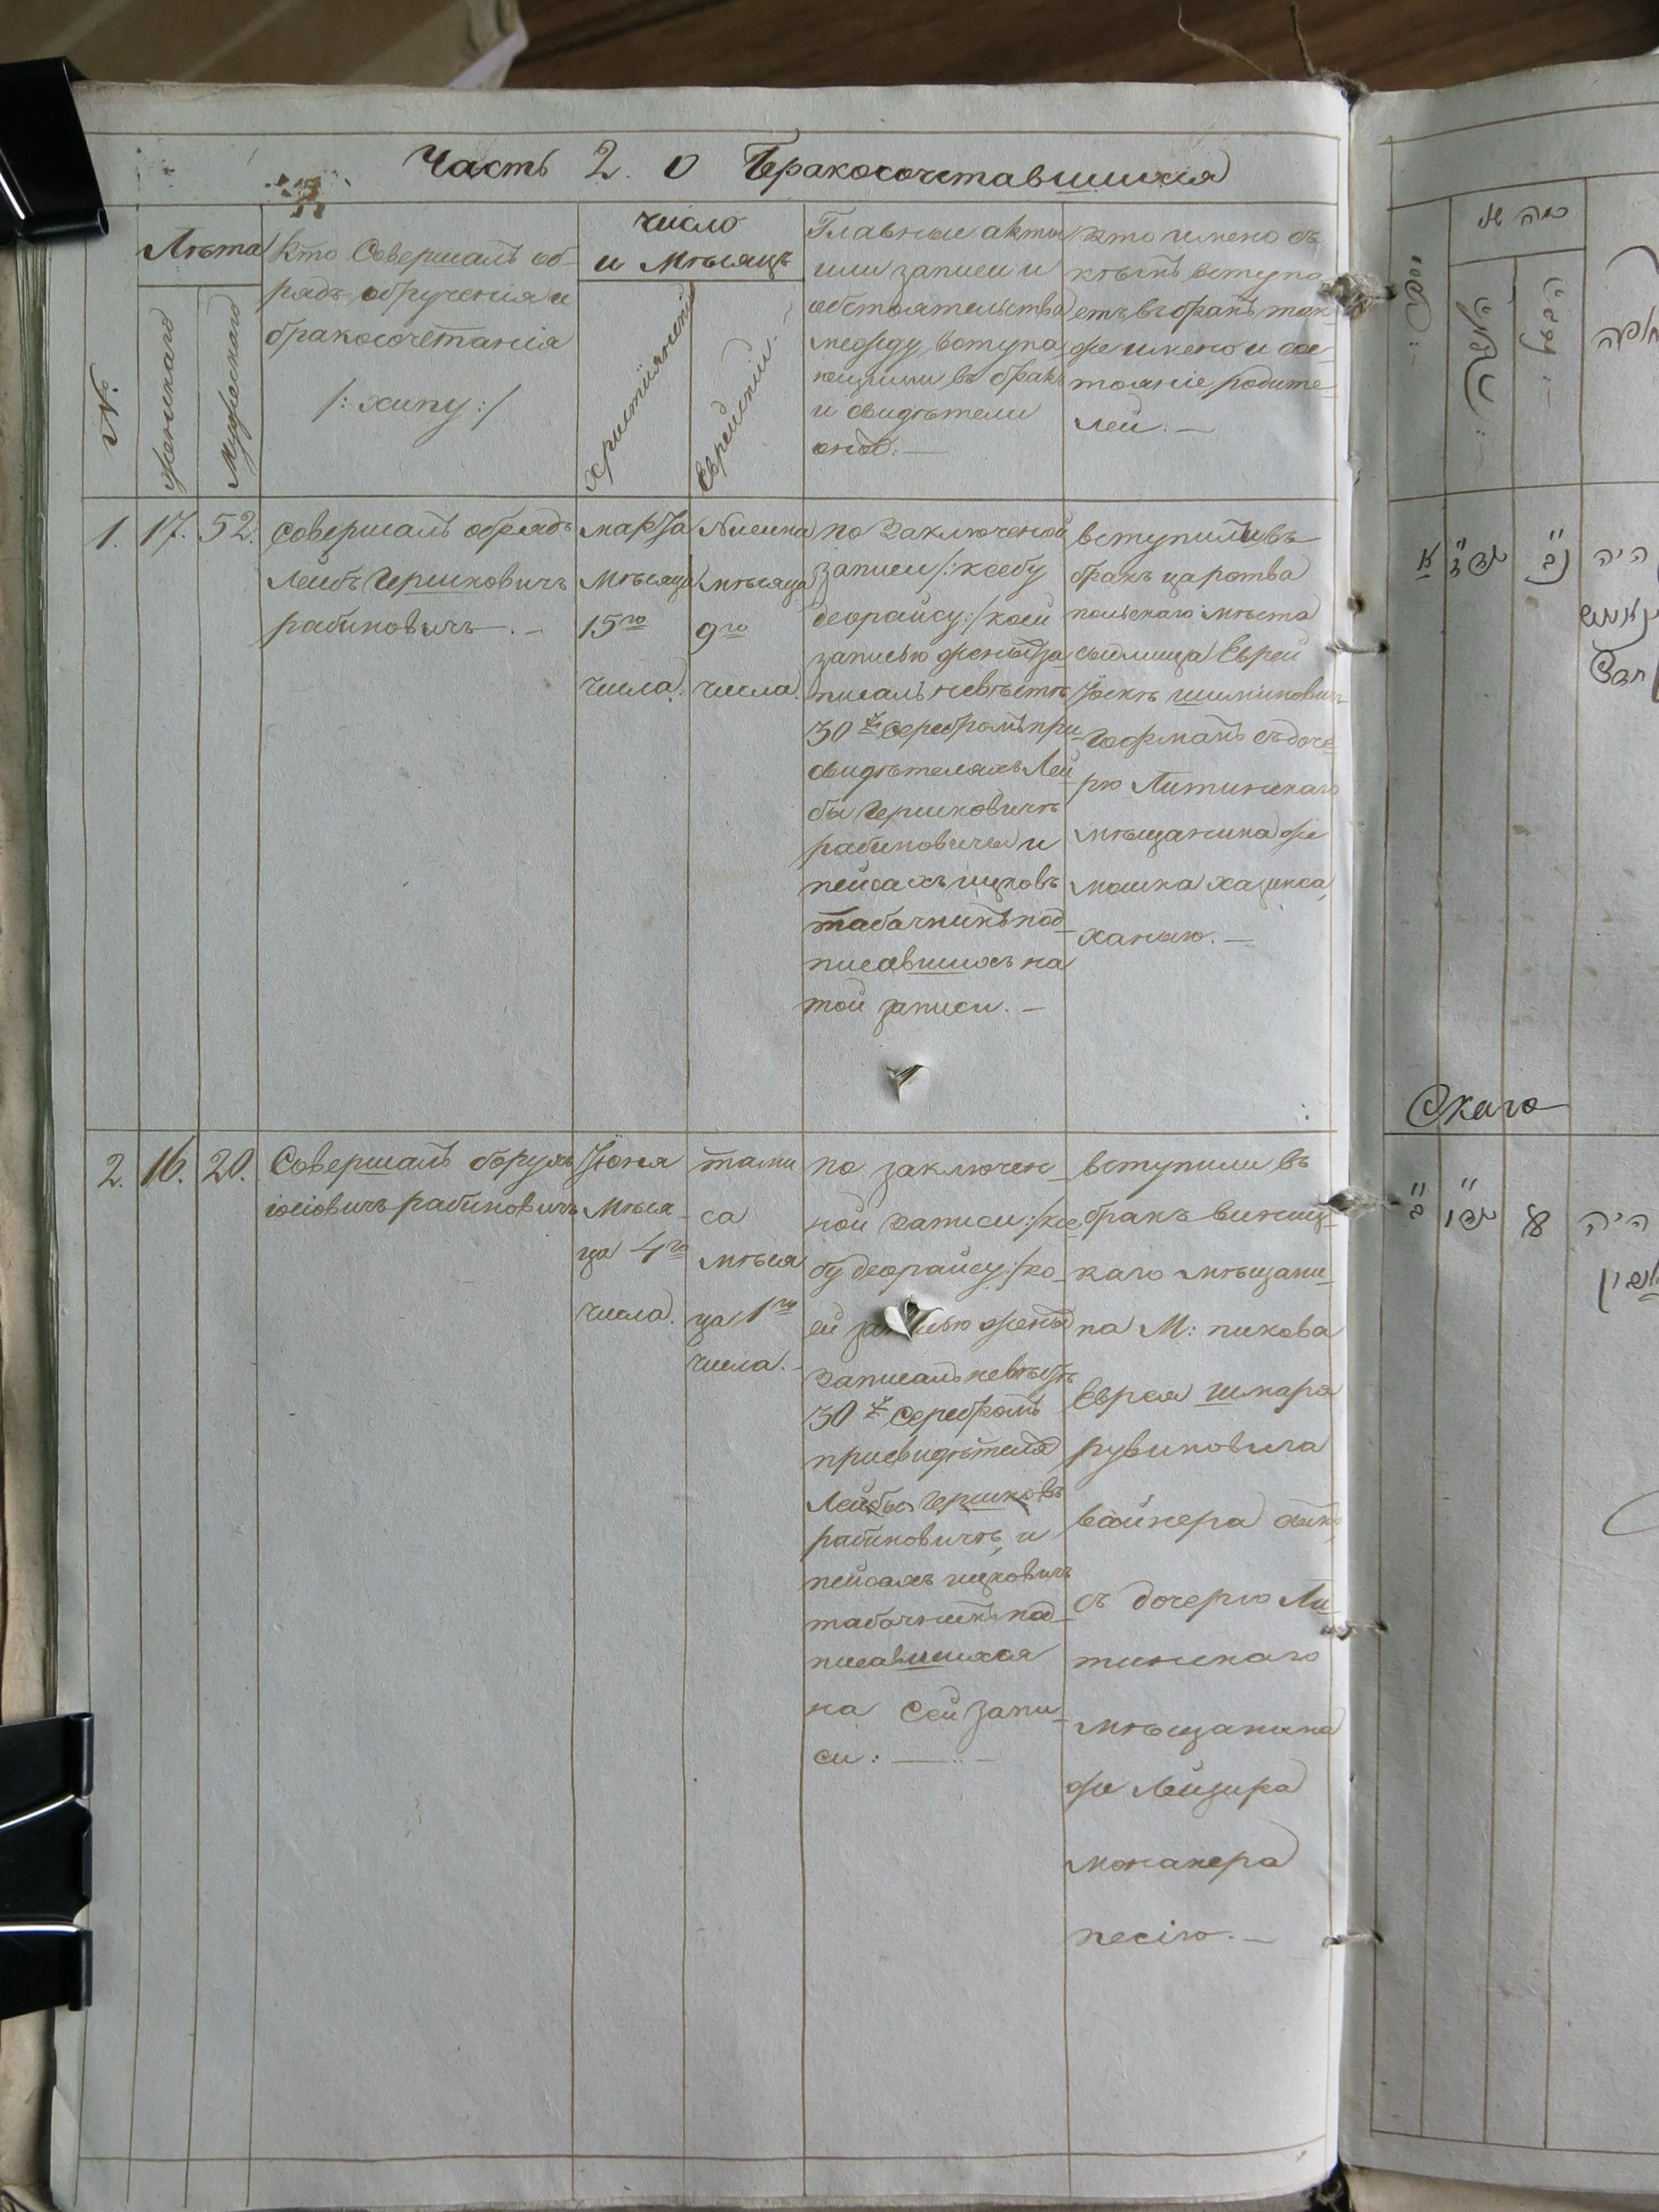 Часть 2. о Бракосочетавшихся
№.
Лѣта
Женскаго
Мужескаго
Кто Совершалъ об-
рядъ обрученія и
бракосочетанія
/: хипу :/
число
и мѣсяцъ
Христіянскій
Еврейскій.
Главные акты
или записи и
обстоятельства
между вступа
ющими въ бракъ
и свидѣтели
оныхъ. —
кто имено съ
кѣмъ вступа
етъ въ бракъ так
же имено и сос-
тояніе родите
лей. —
1.
17.
52.
Совершалъ обрядъ
Лейбъ Гершковичъ
рабиновичъ. —
марта
мѣсяца
15го
числа.
Нисина
мѣсяца
9го
числа.
по Заключеной
записи /: ксебу
деорайсу :/ коей
записью жены за
писалъ невѣстѣ
30 серебромъ при
свидѣтеляхъ Лей
бы Гершковичѣ
рабиновичы и
пейсахъ ицковъ
табачникъ под
писавшихъ на
той записи. —
вступили въ
бракъ царства
польскаго мѣста
Еврей
Гофманъ съ доче
рю Литинскаго
мѣщанина же
мошка
ханою. —
2.
16.
20.
Совершалъ борухъ
іосіовичъ рабиновичъ
Іюня
мѣся-
ца 4го
числа.
тами
са
мѣся
ца 1го
числа. —
по заключен-
ной Записи :/ ксе
бу деорайсу :/ ко-
ей записью жены
Записалъ невѣстѣ
30 Серебромъ
при свидѣтеляхъ
Лейбы Гершковъ
рабиновичѣ, и
пейсахъ ицковичъ
табачникъ под-
писавшихся
на Сей запи-
си: —
вступили въ
бракъ винниц-
каго мѣщани-
на М: пикова
Еврея Шмара
рувиновича
вайнера сынъ
съ дочерю Ли-
тинскаго
мѣщанина
же Лейзира
монакера
песію. —
Скаго
היה
היה